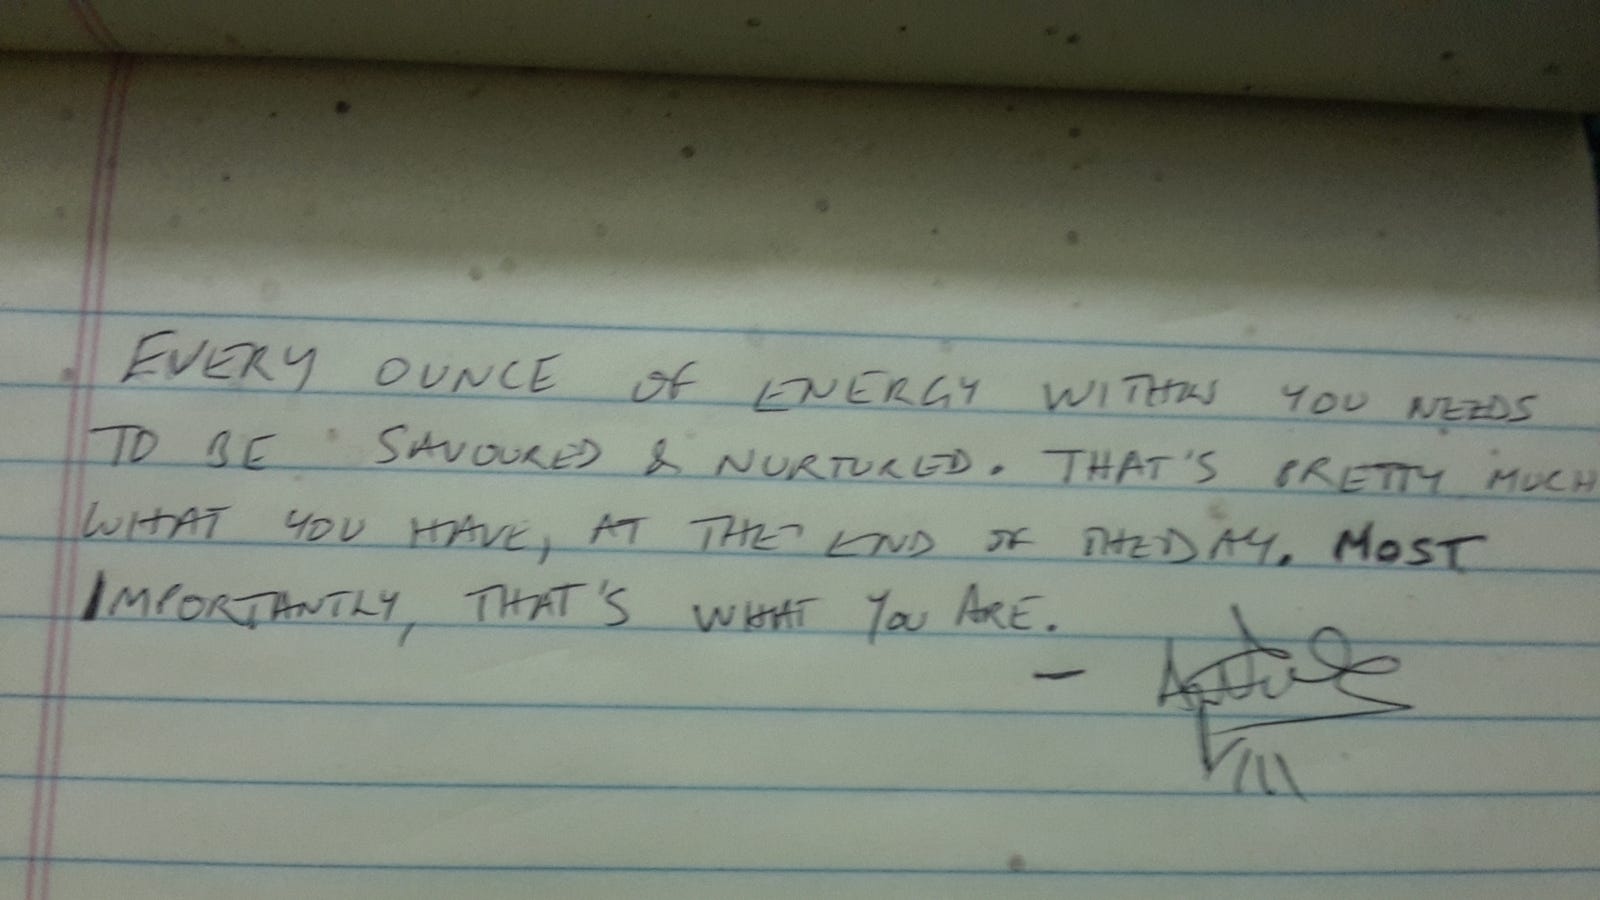 EVERY OUNCE OF ENERGY WITHIN YOU NEEDS
TO BE SAVOURED & NURTURED. THAT'S PRETTY MUCH
WHAT YOU HAVE, AT THE END OF THE DAY. MOST
IMPORTANTLY, THAT'S WHAT YOU ARE.
—